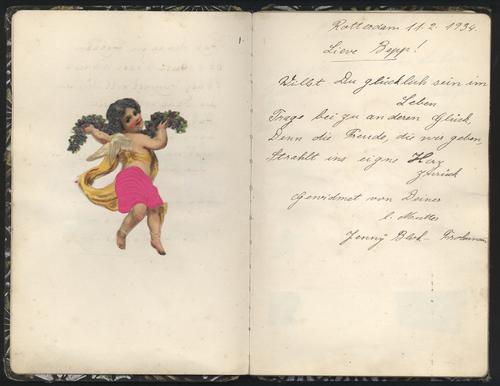 Rotterdam 11.2.1934.
Lieve Bepp!
Willst Du glücklich sein im
Leben
Trage bei zu anderen Glück
Denn die Freude, die wir geben,
Strahlt ins eigne Herz
zurück
Gewidmet von Deiner
l. Mutter
Jenny Bloch-